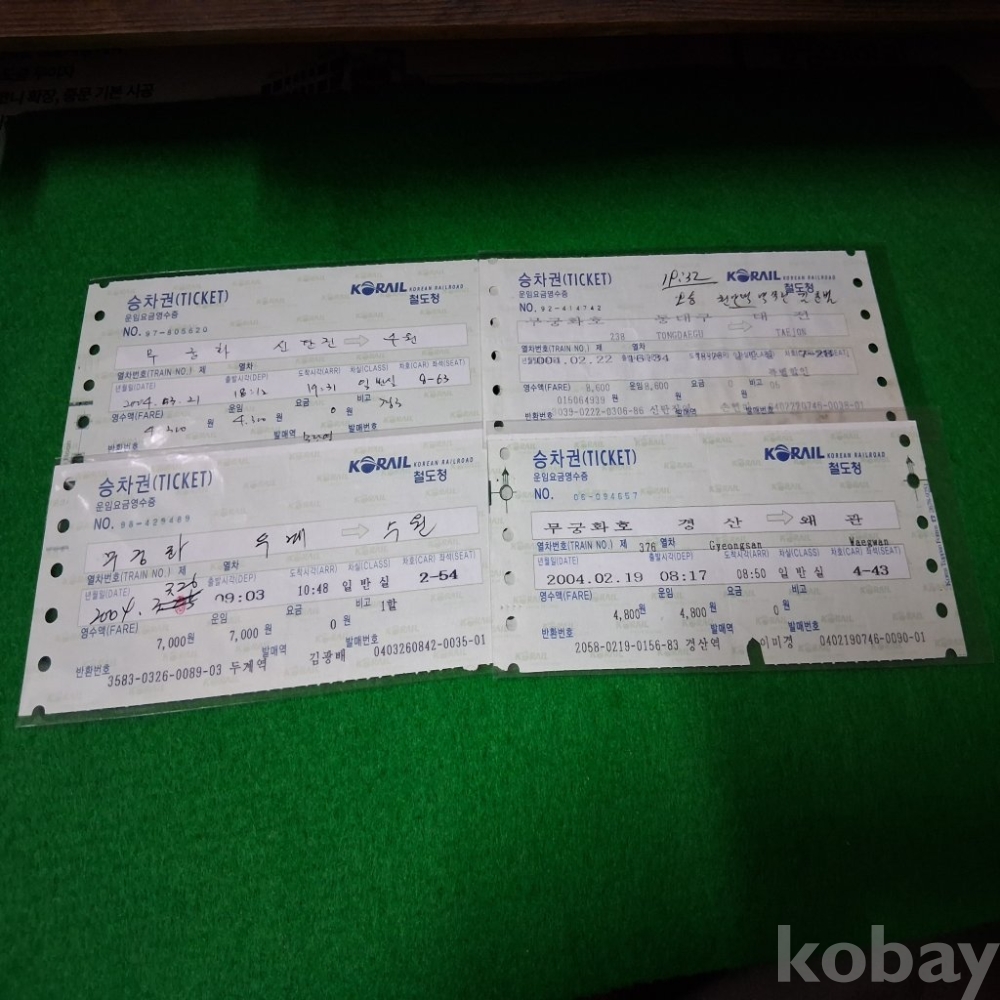 확장, 중문 기본 시공
승차권(TICKET)
KORAIL KOREAN RAILROAD
철도청
운임요금영수증
NO. 97-805620
무궁화 신탄진 ⇨ 수원
열차번호(TRAIN NO.) 제 열차
년월일(DATE) 출발시각(DEP) 도착시각(ARR) 차실(CLASS) 차호(CAR) 좌석(SEAT)
2004.03.21 18:12 19:31 일반실 4-63
영수액(FARE) 운임 요금 비고
원 원 0 원
반환번호 발매역 발매번호
승차권(TICKET)
19:32
KORAIL KOREAN RAILROAD
철도청
운임요금영수증
NO. 92-414742
무궁화호 동대구 ⇨ 대전
238 TONGDAEGU TAEJON
열차번호(TRAIN NO.) 제 열차
2004.02.22
특별할인
영수액(FARE) 8,600 운임 8,600 요금 0 비고
015064939 원 원 원
반환번호
승차권(TICKET)
KORAIL KOREAN RAILROAD
철도청
운임요금영수증
NO. 98-429489
⇨ 수원
열차번호(TRAIN NO.) 제 열차
년월일(DATE) 출발시각(DEP) 도착시각(ARR) 차실(CLASS) 차호(CAR) 좌석(SEAT)
3.26
2004. 09:03 10:48 일반실 2-54
영수액(FARE) 운임 요금 비고 1할
7,000원 7,000 원 0 원
반환번호 발매역 발매번호
3583-0326-0089-03 두계역 김광배 0403260842-0035-01
승차권(TICKET)
KORAIL KOREAN RAILROAD
철도청
운임요금영수증
NO. 06-094657
무궁화호 경산 ⇨ 왜관
열차번호(TRAIN NO.) 제 376 열차 Gyeongsan Waegwan
년월일(DATE) 출발시각(DEP) 도착시각(ARR) 차실(CLASS) 차호(CAR) 좌석(SEAT)
2004.02.19 08:17 08:50 일반실 4-43
영수액(FARE) 운임 요금 비고
4,800원 4,800 원 0 원
반환번호 발매역 발매번호
2058-0219-0156-83 경산역 이미경 0402190746-0090-01
kobay